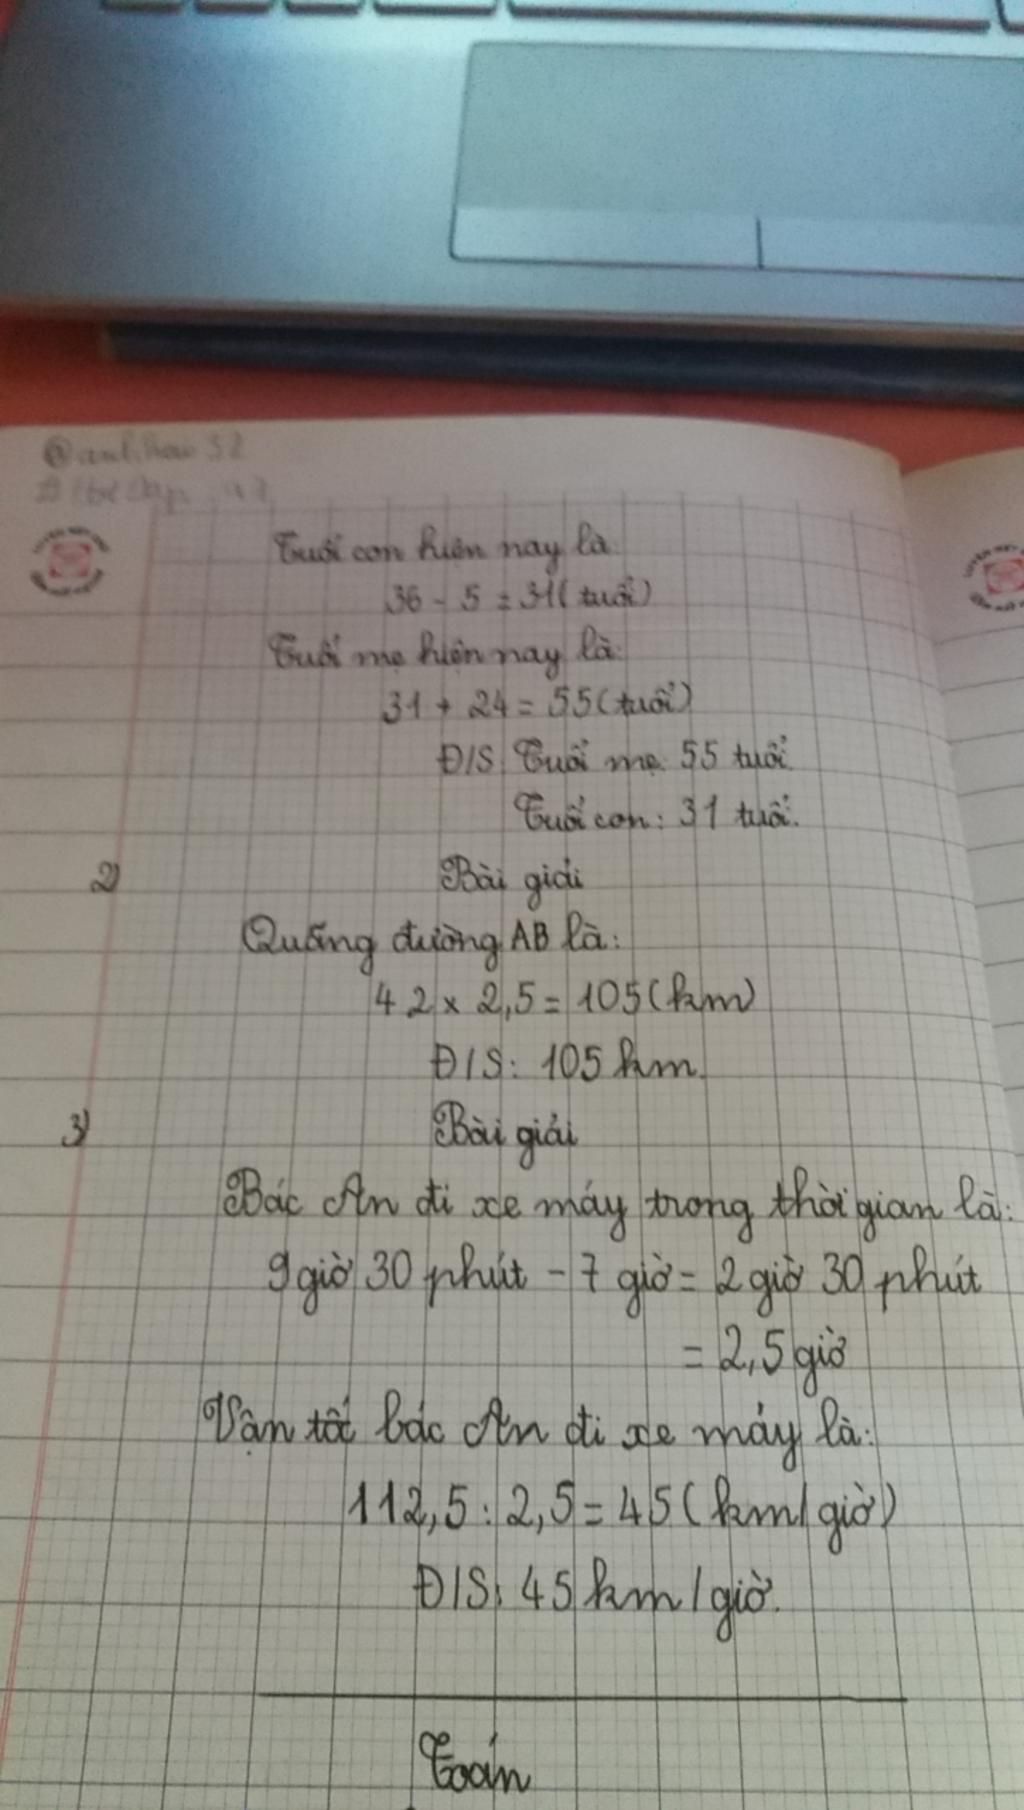 Tuổi con hiện nay là:
36 - 5 = 31 (tuổi)
Tuổi mẹ hiện nay là:
31 + 24 = 55 (tuổi)
Đ/S: Tuổi mẹ: 55 tuổi.
Tuổi con: 31 tuổi.
2) Bài giải
Quãng đường AB là:
42 x 2,5 = 105 (km)
Đ/S: 105 km.
3) Bài giải
Bác An đi xe máy trong thời gian là:
9 giờ 30 phút - 7 giờ = 2 giờ 30 phút
= 2,5 giờ
Vận tốc bác An đi xe máy là:
112,5 : 2,5 = 45 (km/giờ)
Đ/S: 45 km/giờ.
Toán